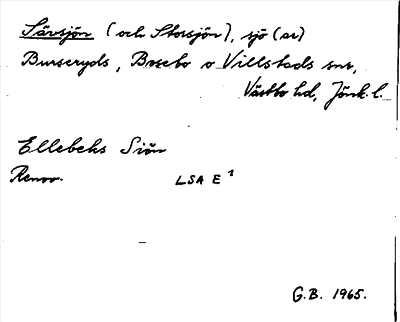 Sävsjön (och Storsjön), sjö (ar)
Burseryds, Bosebo o Villstads snr,
Västbo hd, Jönk. l.
Ellebeks Siön
Renov. LSA E¹
G.B. 1965.